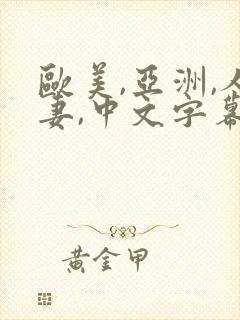 歐美,亞洲,人
妻,中文字幕
黃金甲